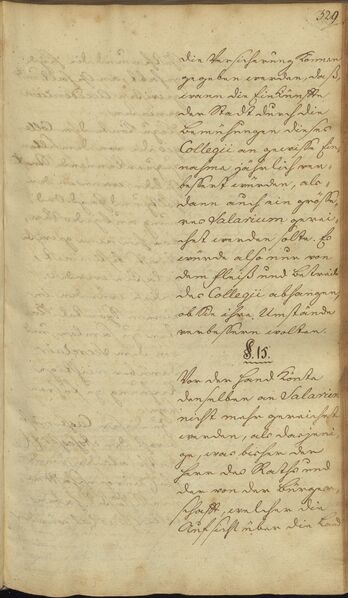 329
die Versicherung können
gegeben werden, daß,
wann die Einkünffte
der Stadt durch die
Bemühungen dieses
Collegii an gewisse Ein-
nahme jährlich ver-
bessert würden, als-
dann auch ein größe-
res Salarium gerei-
chet werden solte. Es
würde also nur von
dem Fleiß und Betrieb
des Collegii abhangen,
ob Sie ihre Umstände
verbessern wolten.
§. 15.
Vor der Hand könte
denselben an Salarium
nicht mehr gereichet
werden, als dasjeni-
ge, was bisher der
Herr des Raths und
der von der Bürger-
schafft, welcher die
Aufsicht über die